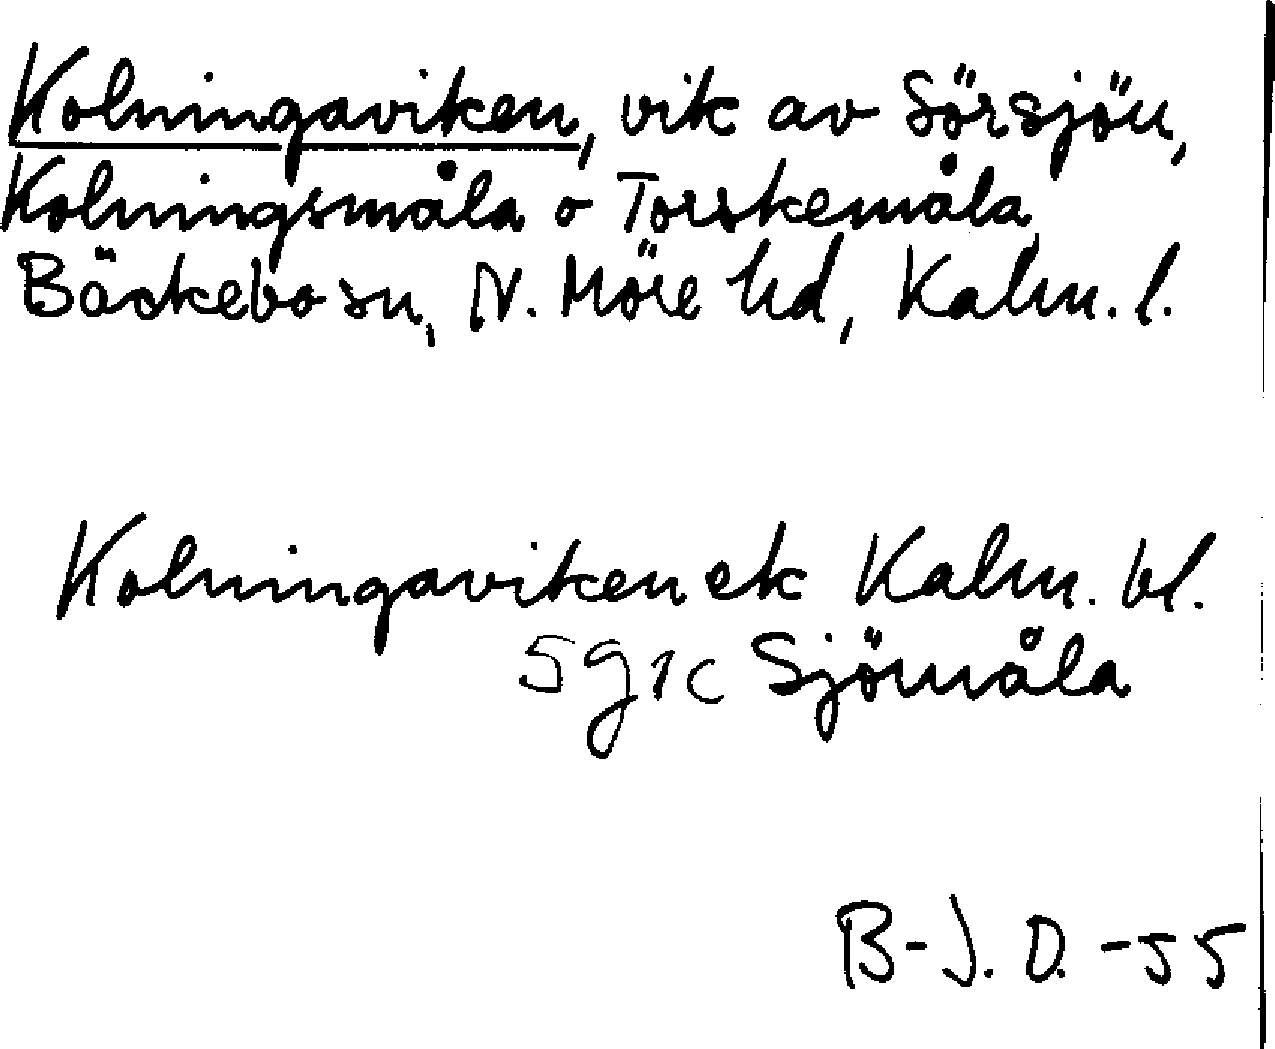 Kolningaviken, vik av Sörsjön,
Kolningsmåla o Torskemåla
Bäckebo sn, N. Möre hd, Kalm. l.
Kolningaviken ek Kalm. bl.
5g1c Sjömåla
B-J. O. -55